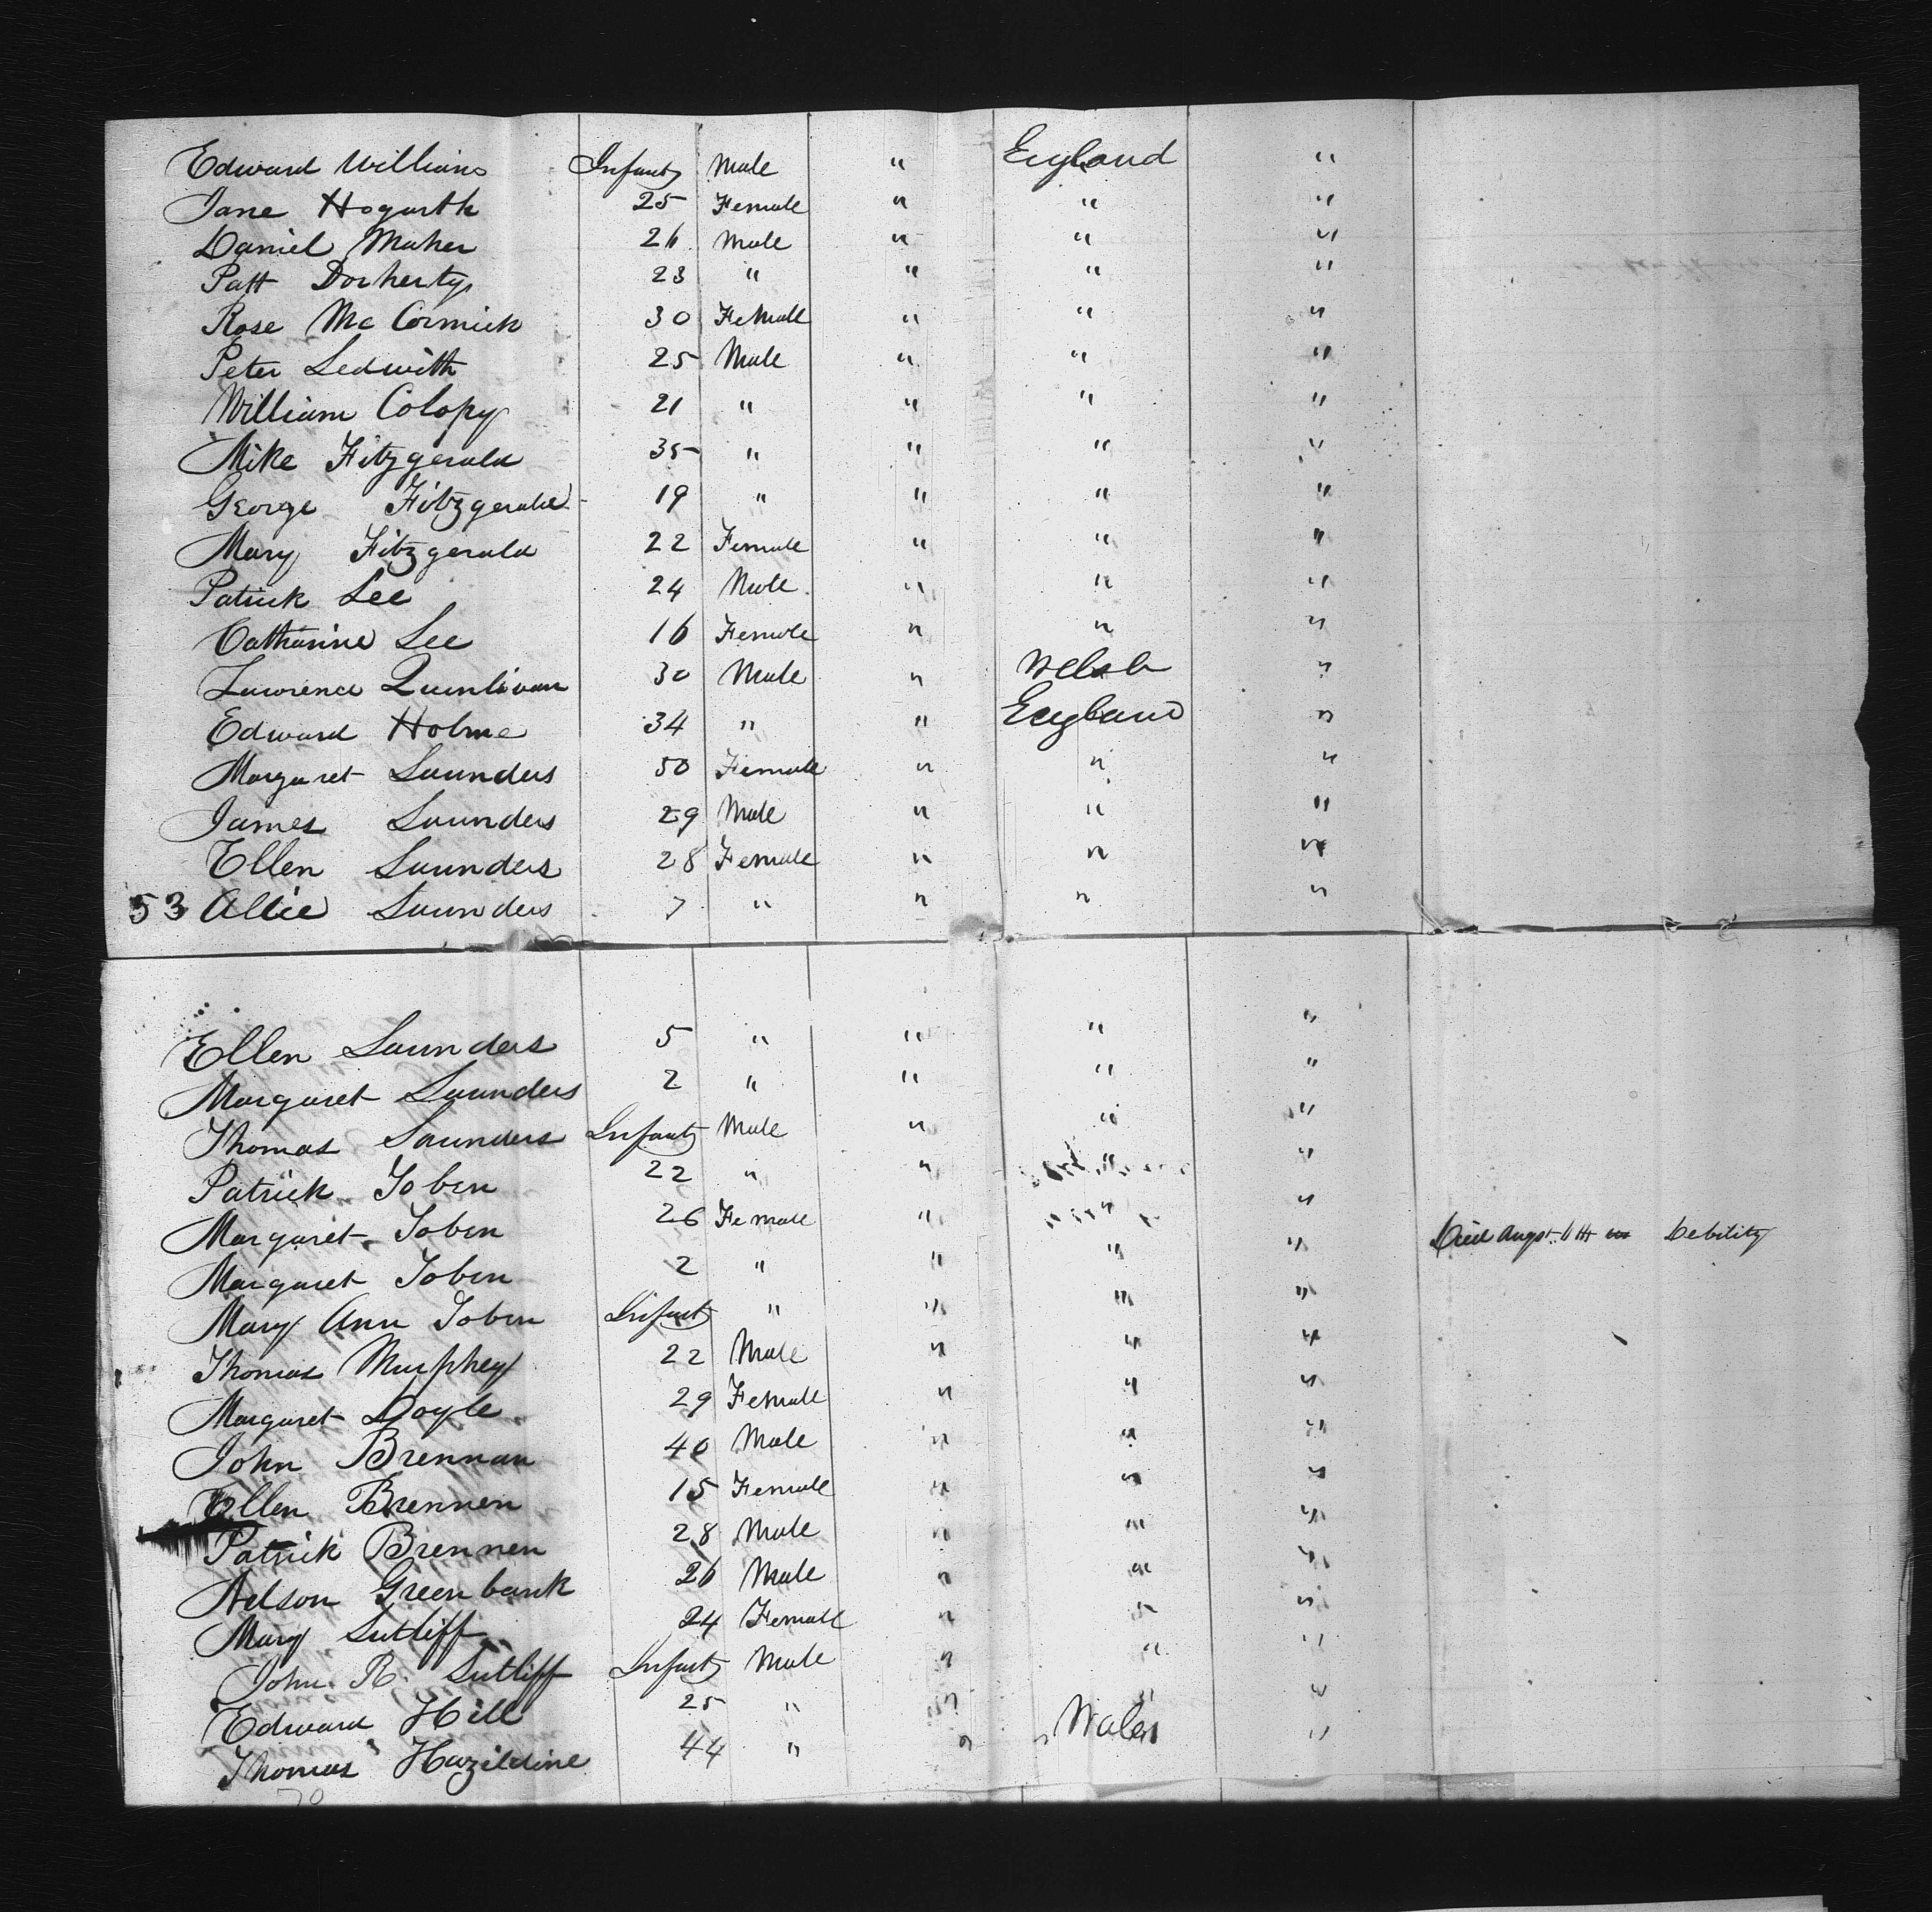 Edward Williams Infant Male " England "
Jane Hogarth 25 Female " " "
Daniel Maher 26 Male " " "
Patt Dorherty 23 " " " "
Rose Mc Cormick 30 Female " " "
Peter Ledwith 25 Male " " "
William Colopy 21 " " " "
Mike Fitzgerald 35 " " " "
George Fitzgerald 19 " " " "
Mary Fitzgerald 22 Female " " "
Patrick Lee 24 Male " " "
Catharine Lee 16 Female " " "
Lawrence Quinlivan 30 Male " Welsh "
Edward Holme 34 " " England "
Margaret Saunders 50 Female " " "
James Saunders 29 Male " " "
Ellen Saunders 28 Female " " "
53 Allie Saunders 7 " " " "
Ellen Saunders 5 " " " "
Margaret Saunders 2 " " " "
Thomas Saunders Infant Male " " "
Patrick Tobin 22 " " " "
Margaret Tobin 26 Female " " "
Margaret Tobin 2 " " " " Died Augst 11th Debility
Mary Ann Tobin Infant " " " "
Thomas Murphey 22 Male " " "
Margaret Doyle 29 Female " " "
John Brennan 40 Male " " "
Ellen Brennen 15 Female " " "
Patrick Brennen 28 Male " " "
Nelson Greenbank 26 Male " " "
Mary Sutliff 24 Female " " "
John R. Sutliff Infant Male " " "
Edward Hill 25 " " " "
Thomas Hazildine 44 " " " Wales "
70